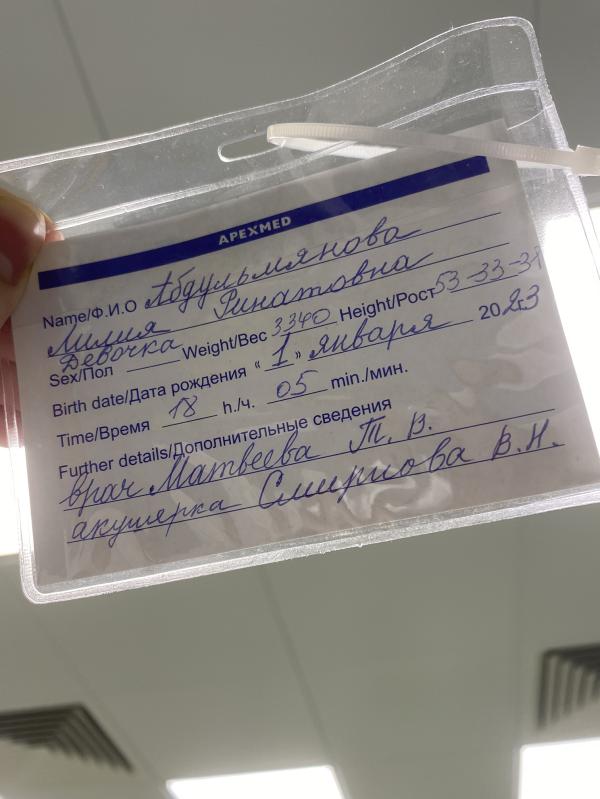 APEXMED
Name/Ф.И.О Абдульмянова
Лилия Ринатовна
Девочка
Sex/Пол Weight/Вес 3340 Height/Рост 53-33-34
Birth date/Дата рождения " 1 " января 2023
Time/Время 18 h./ч. 05 min./мин.
Further details/Дополнительные сведения
врач Матвеева Т. В.
акушерка Смирнова В.Н.